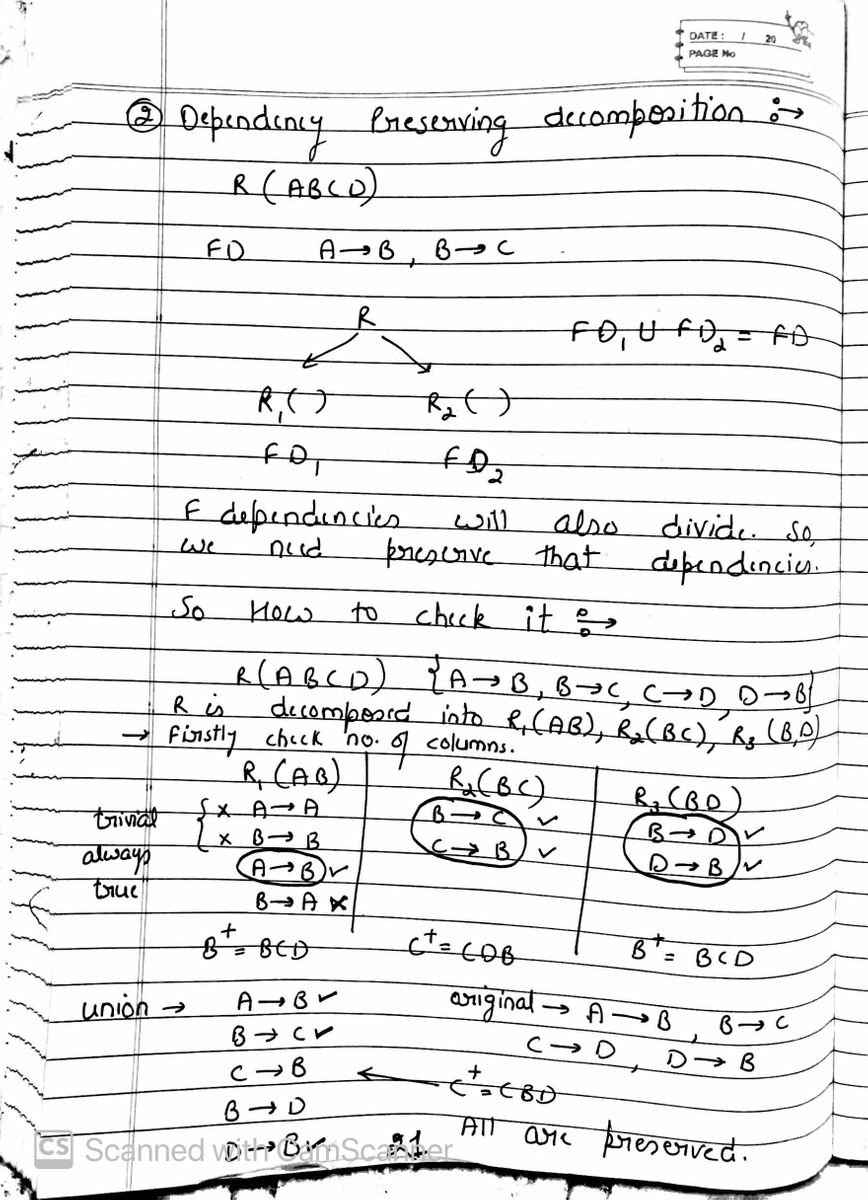 DATE: / 20
PAGE No
② Dependency Preserving decomposition :→
R (ABCD)
FD A→B, B→C
R FD₁ U FD₂ = FD
R₁( ) R₂( )
FD₁ FD₂
F dependencies will also divide. So,
we need preserve that dependencies.
So How to check it :→
R(ABCD) {A→B, B→C, C→D, D→B}
R is decomposed into R₁(AB), R₂(BC), R₃(B,D)
→ Firstly check no. of columns.
R₁(AB) R₂(BC) R₃(BD)
trivial { x A→A B→C ✓ B→D ✓
always x B→B C→B ✓ D→B ✓
true A→B ✓
B→A x
B⁺ = BCD C⁺ = CDB B⁺ = BCD
union → A→B ✓ original → A→B, B→C
B→C ✓ C→D, D→B
C→B ← C⁺ = CBD
B→D
D→B ✓ All are preserved.
CS Scanned with CamScanner 21